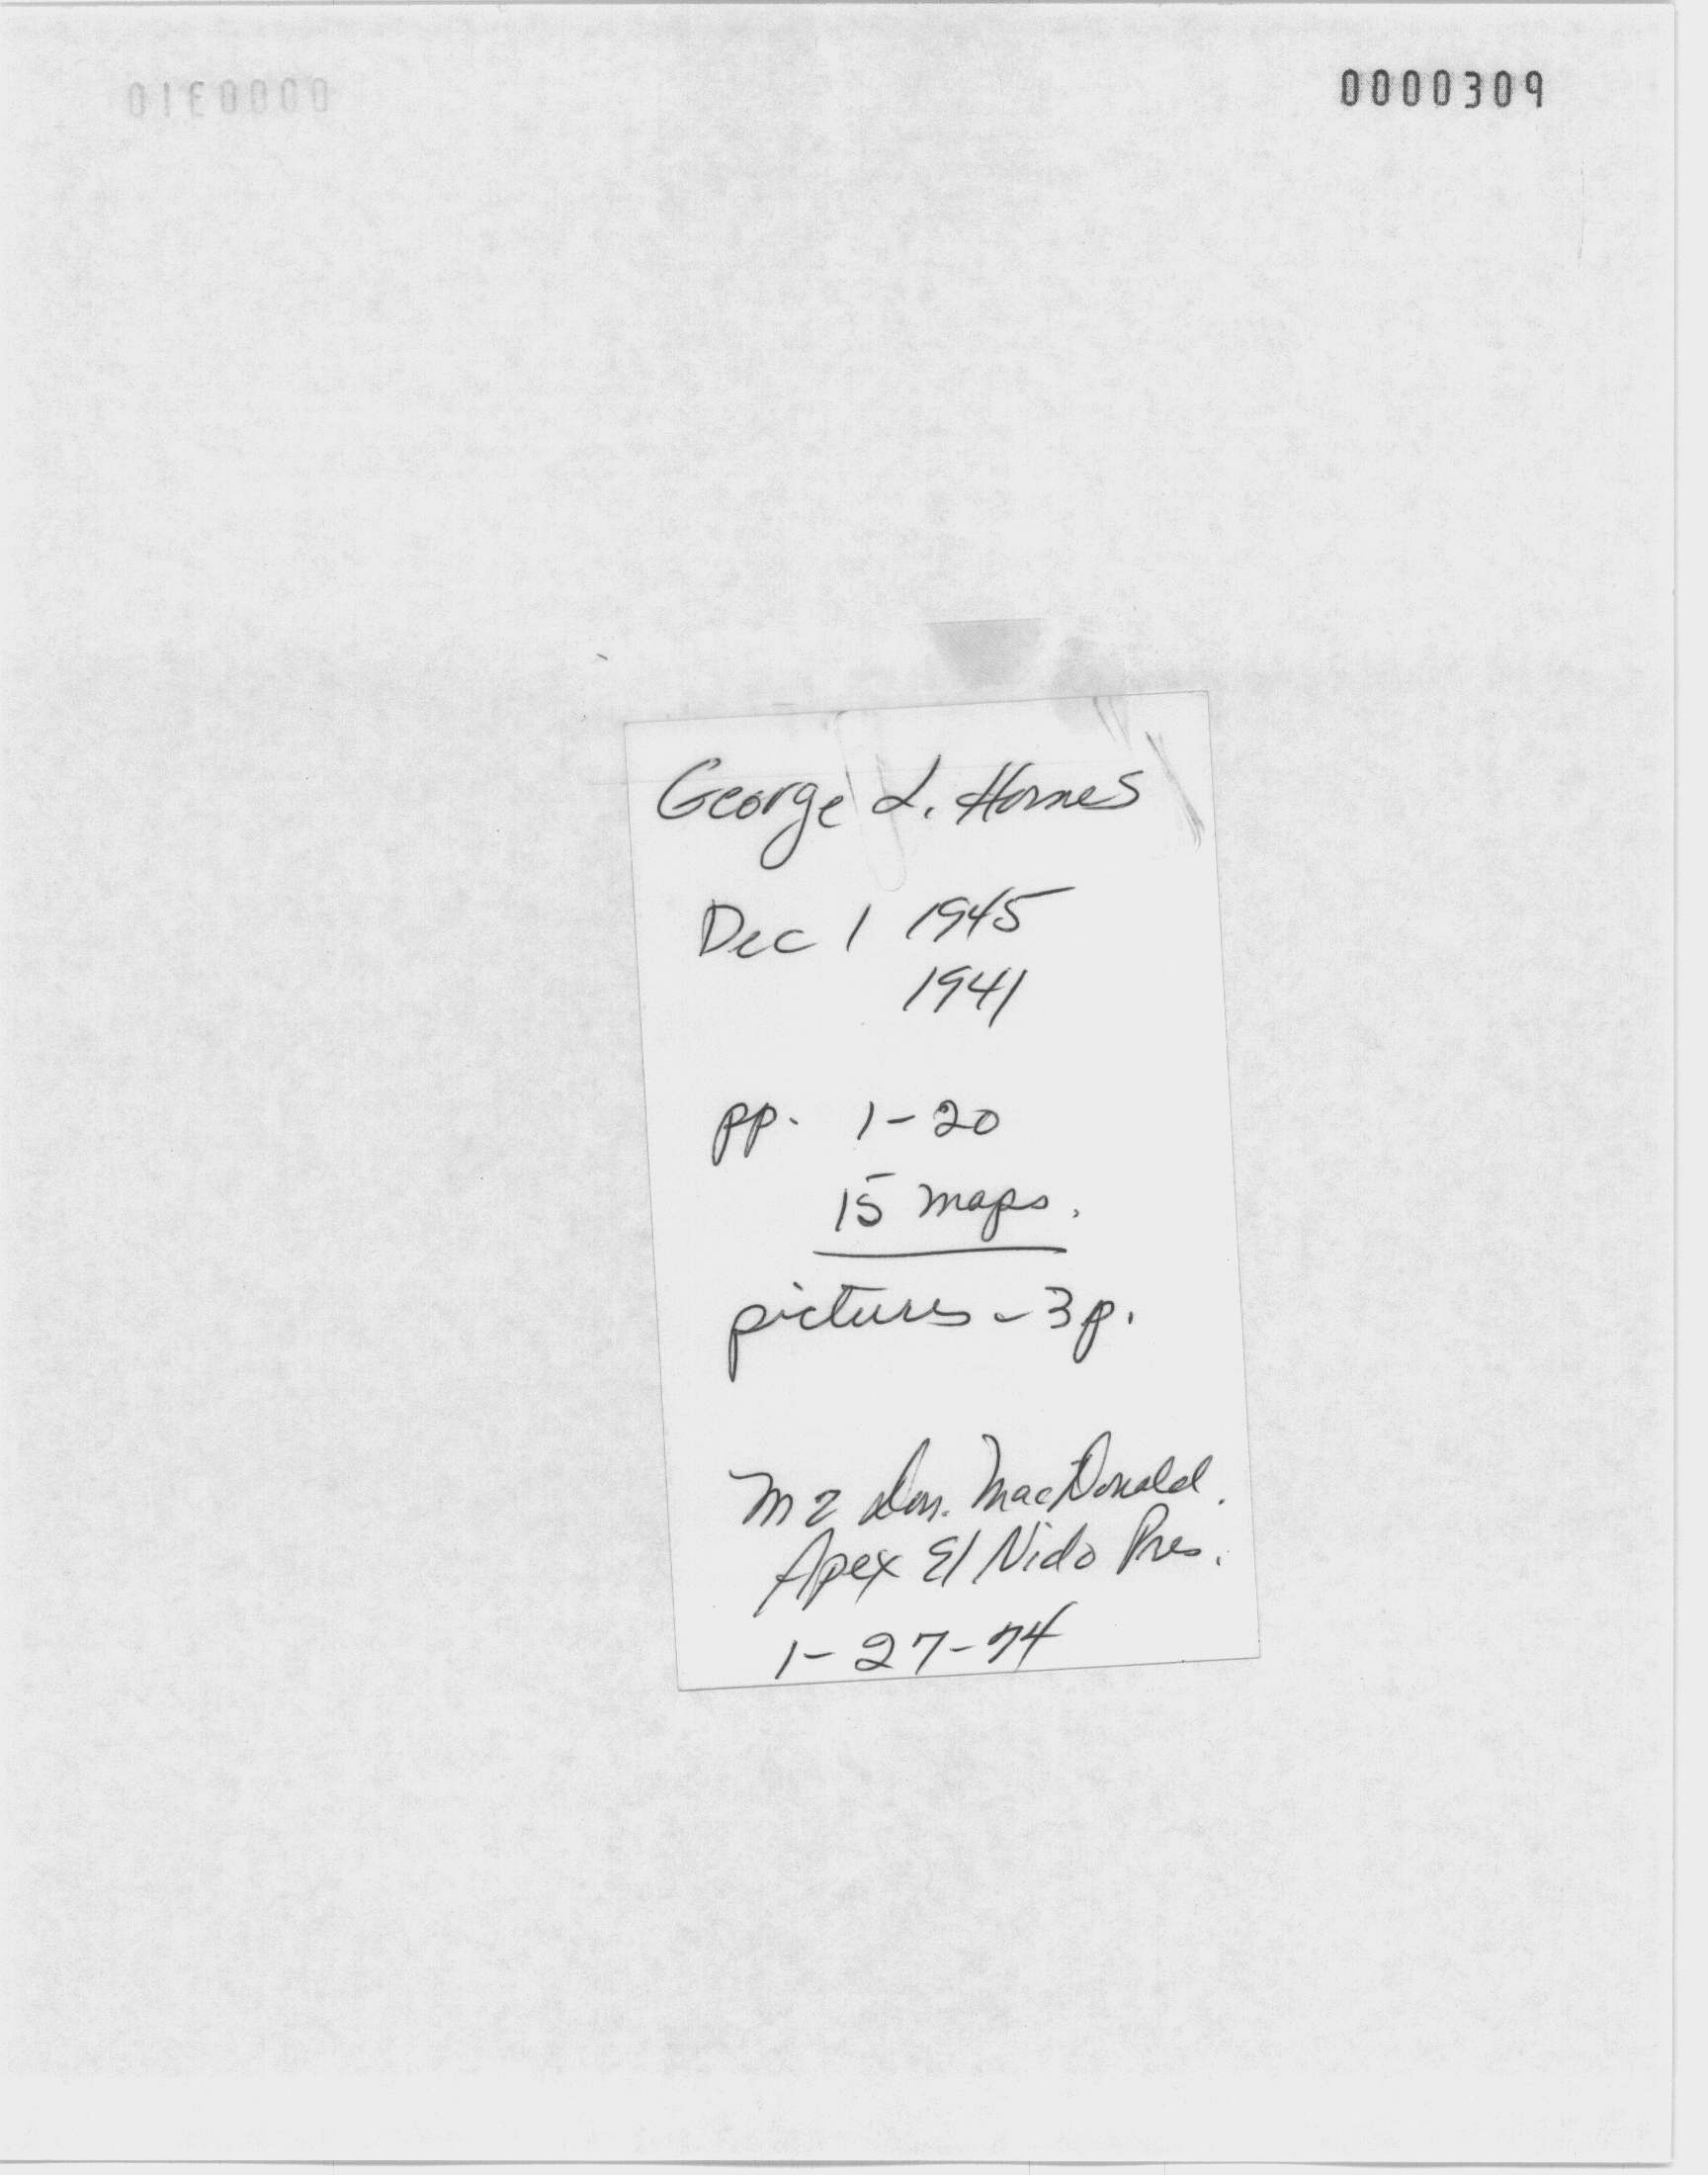 0000309
George L. Hornes
Dec 1 1945
1941
pp. 1-20
15 maps.
pictures - 3p.
Don. MacDonald.
Apex El Nido Pres.
1-27-74